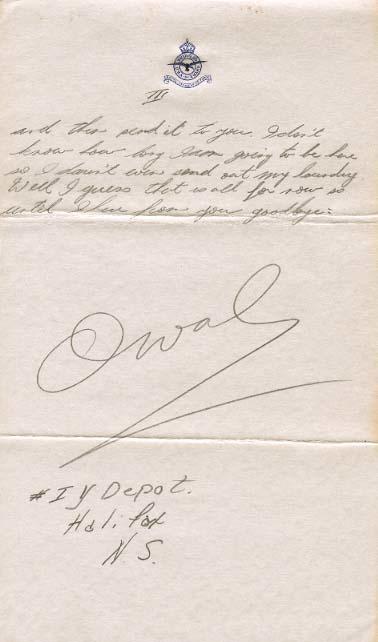 III
and then send it to you. I don't
know how long I am going to be here
so I daren't even send out my laundry
Well I guess that is all for now so
until I hear from you goodbye:
Owal
# I Y Depot.
Halifax
N S.